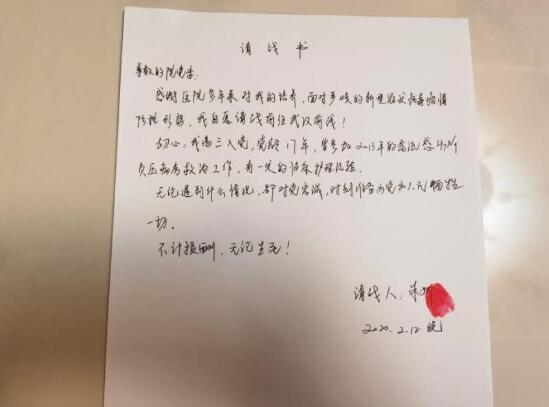 请战书
尊敬的院党委:
感谢医院多年来对我的培养,面对严峻的新型冠状病毒疫情
防控形势,我自愿请战前往武汉前线!
初心,我高三入党,党龄17年,曾参加2013年的禽流感H7N9
负压病房救治工作,有一定的临床护理经验。
无论遇到什么情况,都对党忠诚,时刻准备为党和人民牺牲
一切。
不计报酬,无论生死!
请战人:朱
2020.2.12晚